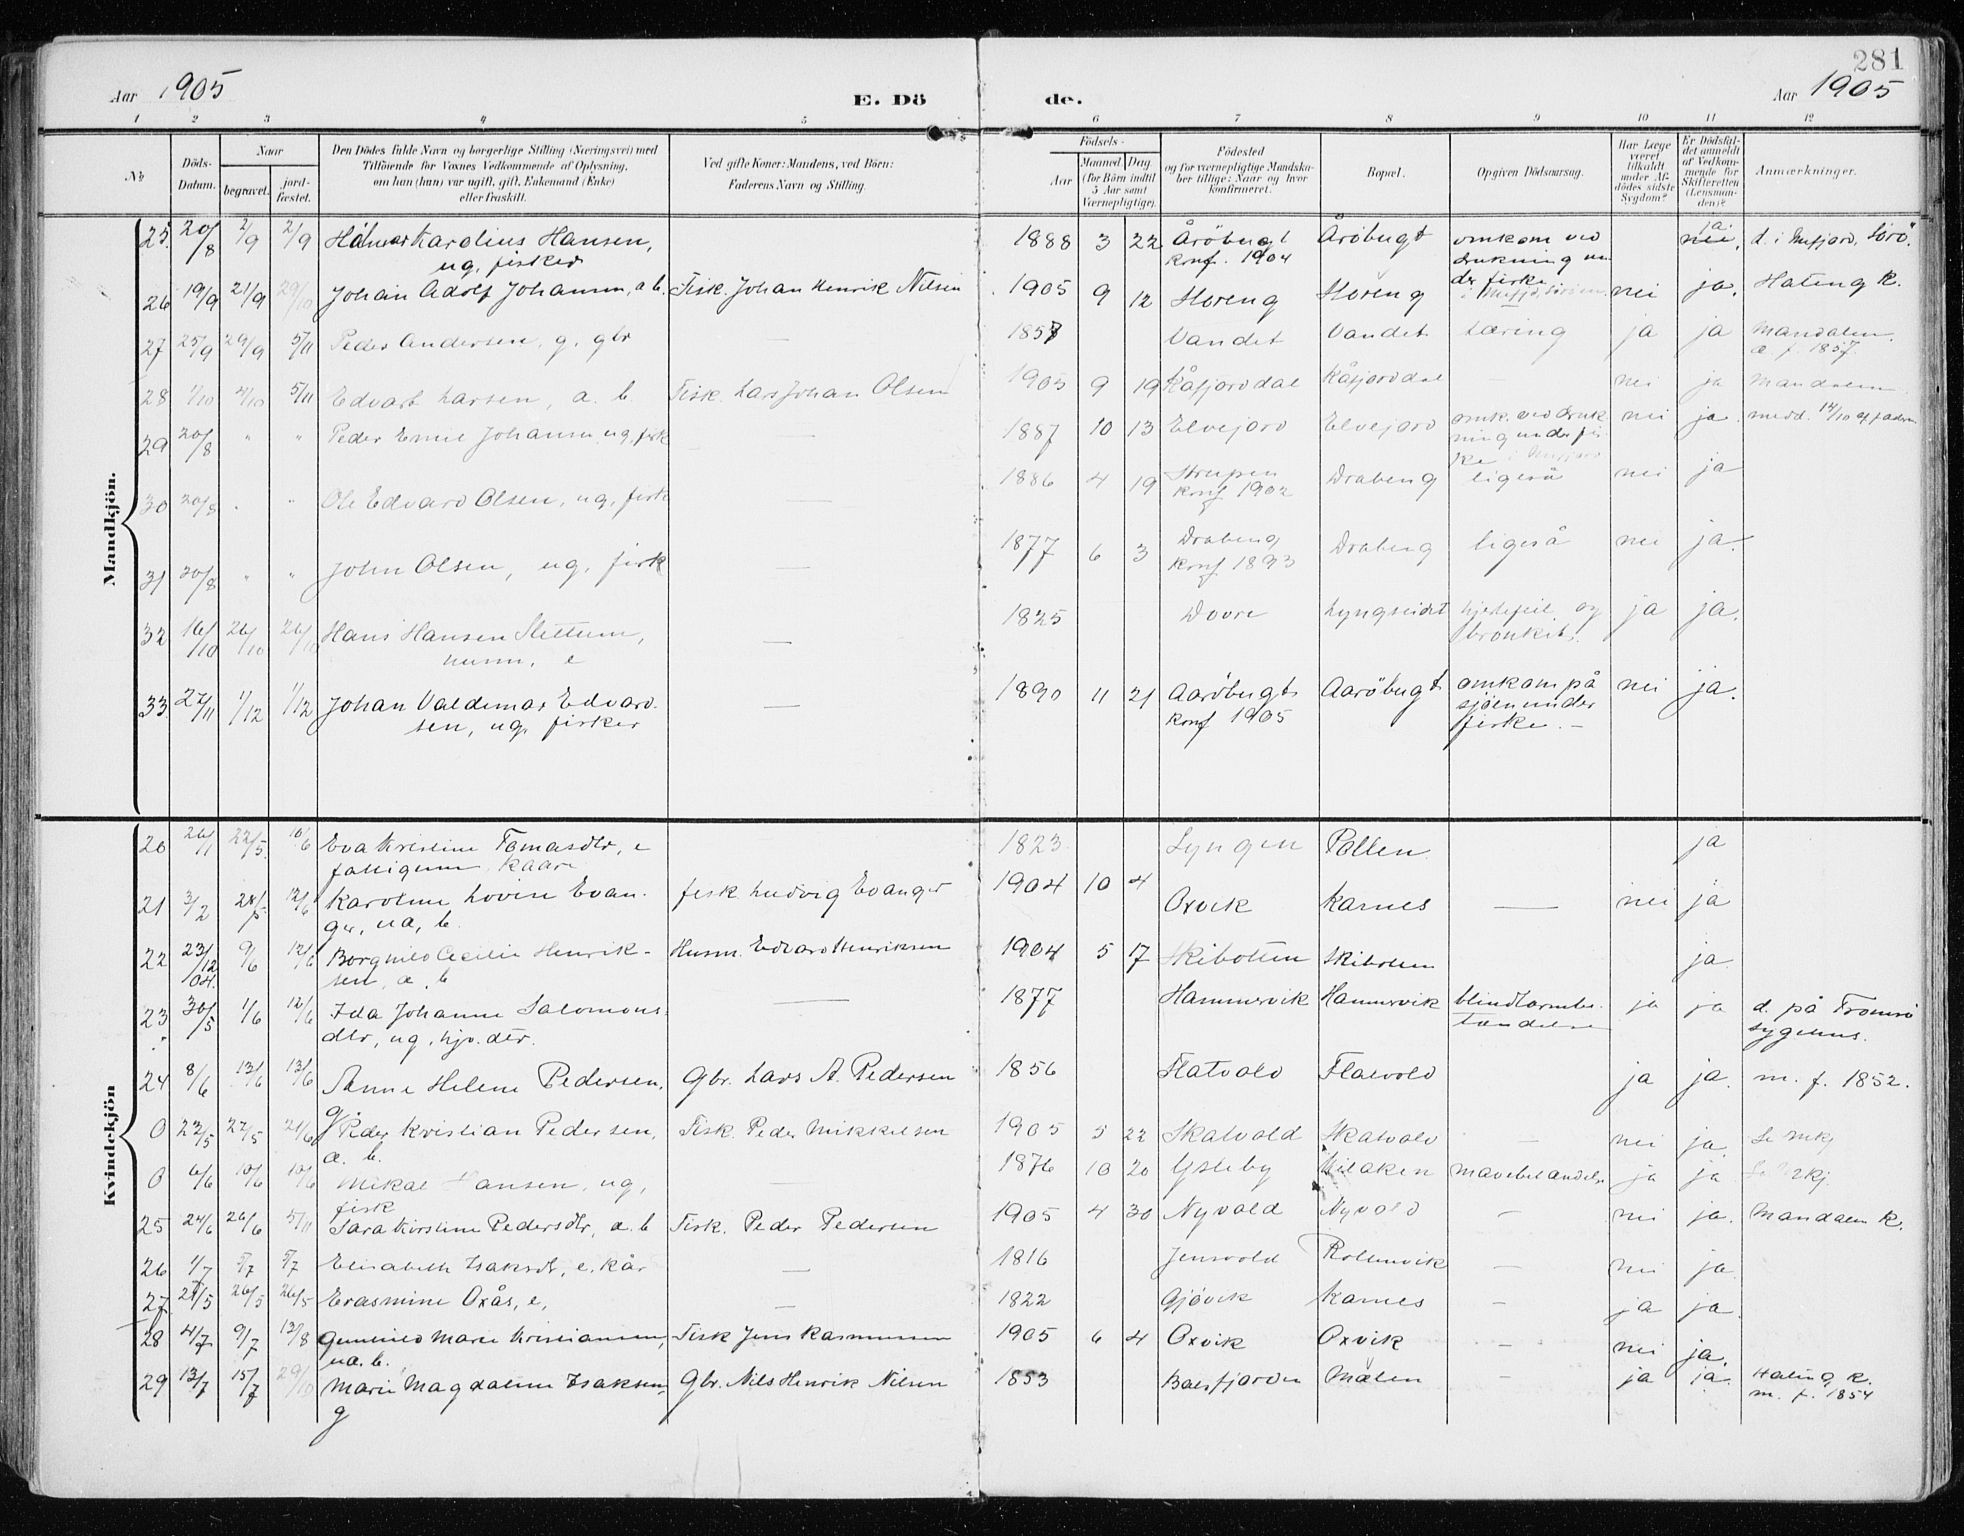 281
Aar 1905
E. Döde.
Aar 1905
1 2 3 4 5 6 7 8 9 10 11 12
№
Döds-Datum.
Naar
begravet.
jord-fæstet.
Den Dödes fulde Navn og borgerlige Stilling (Næringsvei) med
Tilföiende for Voxnes Vedkommende af Oplysning,
om han (hun) var ugift, gift, Enkemand (Enke)
eller fraskilt.
Ved gifte Koner: Mandens, ved Börn:
Faderens Navn og Stilling.
Födsels-
Aar
Maaned Dag
(for Börn indtil
5 Aar samt
Værnepligtige).
Födested
og for værnepligtige Mandska-
ber tillige: Naar og hvor
konfirmeret.
Bopæl.
Opgiven Dödsaarsag.
Har Læge
været
tilkaldt
under Af-
dödes sidste
Sygdom?
Er Dödsfal-
det anmeldt
af Vedkom-
mende for
Skifteretten
(Lensman-
den)?
Anmærkninger.
Mandkjön.
25. 20/8 2/9 2/9 Karolius Hansen, ug. fisker 1888 3 22 Åröbugt konf. 1904 Åröbugt omkom ved drukning under fiske ja d. i Mefjord, Sörö.
26 19/9 21/9 29/10 Johan Adolf Johansen, a. b. Fisk. Johan Henrik Nilsen 1905 9 12 Horeng Horeng nei ja. Hateng k.
27 25/9 29/9 5/11 Peder Andersen, g. gbr — 1857 Vandet Vandet tæring ja ja Mandalen. æ f. 1857.
28 1/10 4/10 5/11 Edvart Larsen, a. b. Fisk. Lars Johan Olsen 1905 9 19 Kåfjorddal Kåfjorddal — nei ja Mandalen
29 20/8 " " Peder Emil Johansen, ug, fisk — 1887 10 13 Elvejord Elvejord omk. ved drukning under fiske i Mefjord nei ja. medd. 14/10 af faderen
30 20/8 " " Ole Edvard Olsen, ug, fisk — 1886 4 19 Strupen konf 1902 Drabeng ligeså nei ja
31 20/8 " " John Olsen, ug, fisk — 1877 6 3 Drabeng konf 1893 Drabeng ligeså nei ja.
32 16/10 26/10 26/10 Hans Hansen Slettum, husm, e — 1825 Dovre Lyngseidet hjertefeil og bronkit. ja ja.
33 27/11 1/12 1/12 Johan Valdemar Edvardsen, ug. fisker — 1890 11 21 Aaröbugt konf 1905 Aaröbugt omkom på sjöen under fiske. — nei ja.
Kvindekjön
20 26/1 22/5. 10/6 Eva Kristine Tomasdtr, e fattigum. kaare 1823 Lyngen Pollen ja
21 3/2 28/5. 12/6 Karoline Lovise Evanger, ua, b. fisk Ludvig Evanger 1904 10 4 Oxvik Karnes — nei ja
22 23/12 04. 9/6 12/6 Borghild Cecilie Henriksen, æ. b Husm. Edvard Henriksen 1904 5 17 Skibotten Skibotten ja
23 30/5 1/6 12/6 Ida Johanne Salomonsdtr, ug, hjv. dtr. — 1877 Hammervik Hammervik blindtarmbetændelse ja ja d. på Tromsö sygehus.
24 8/6 13/6 13/6 Anne Helene Pedersen, g Gbr. Lars A. Pedersen 1856 Flatvold Flatvold ja ja. m. f. 1852.
0 22/5 27/5 21/6 Peder Kristian Pedersen, a. b. Fisk. Peder Mikkelsen 1905 5 22 Skatvold Skatvold — nei ja. Se mkj
0 6/6 10/6 10/6 Mikal Hansen, ug, fisk — 1876 10 20 Ysteby mavebetændelse ja ja Se mkj.
25 24/6 26/6 5/11 Sara Kirstine Pedersdtr, a. b Fisk. Peder Pedersen 1905 4 30 Nyvold Nyvold — nei ja. Mandalen k.
26 1/7 5/7 5/7 Elisabeth Isaksdt, e. kår — 1816 Jensvold Rottenvik — nei ja
27 21/5 26/5 26/5 Erasmine Oxås, e, — 1822 Gjövik Karnes — ja ja.
28 4/7 9/7 13/8 Gunhild Marie Kristiansen, ua. b. Fisk Jens Rasmussen 1905 6 4 Oxvik Oxvik — nei ja.
29 13/7 15/7 29/10 Marie Magdalene Isaksen, g Gbr. Nils Henrik Nilsen 1853 Balsfjorden Målen ja ja. Hateng k. m. f. 1854